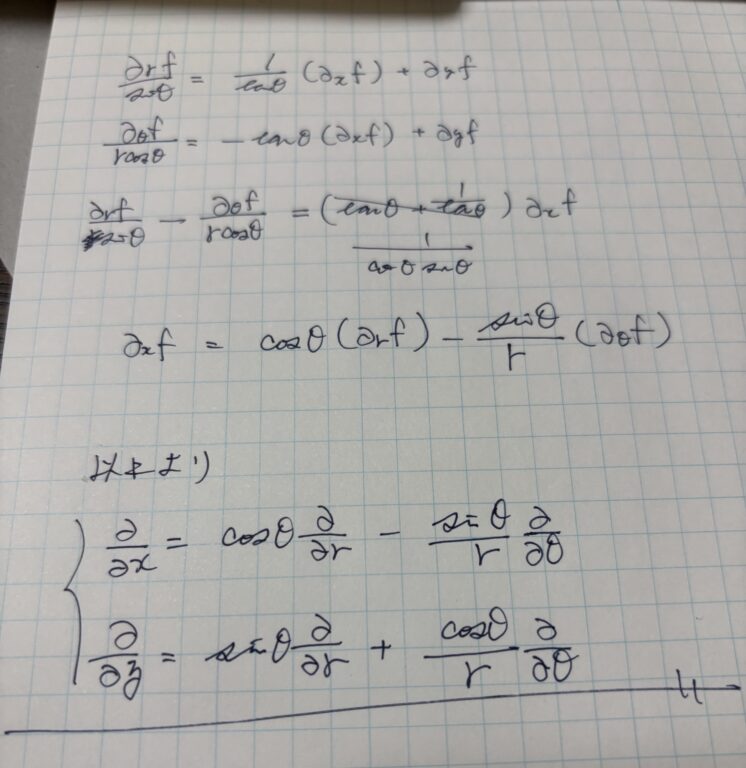 ∂rf/sinθ = 1/tanθ (∂xf) + ∂yf
∂θf/rcosθ = −tanθ(∂xf) + ∂yf
∂rf/sinθ − ∂θf/rcosθ = (tanθ + 1/tanθ) ∂xf
1/cosθ sinθ
∂xf = cosθ(∂rf) − sinθ/r (∂θf)
以上より
∂/∂x = cosθ ∂/∂r − sinθ/r ∂/∂θ
∂/∂y = sinθ ∂/∂r + cosθ/r ∂/∂θ